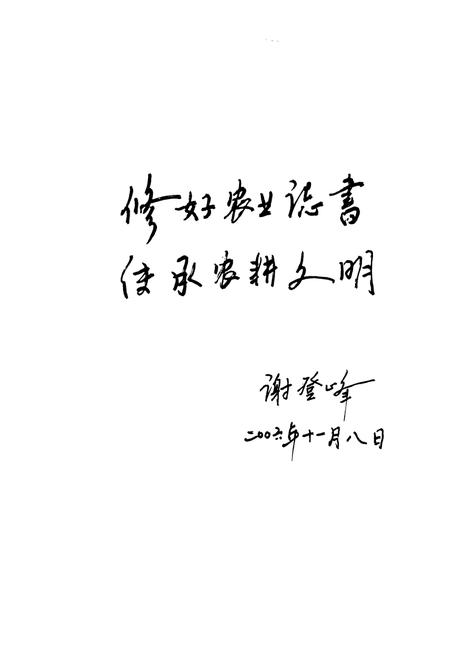 修好农业誌書
传承农耕文明
谢登峰
二〇〇六年十一月八日